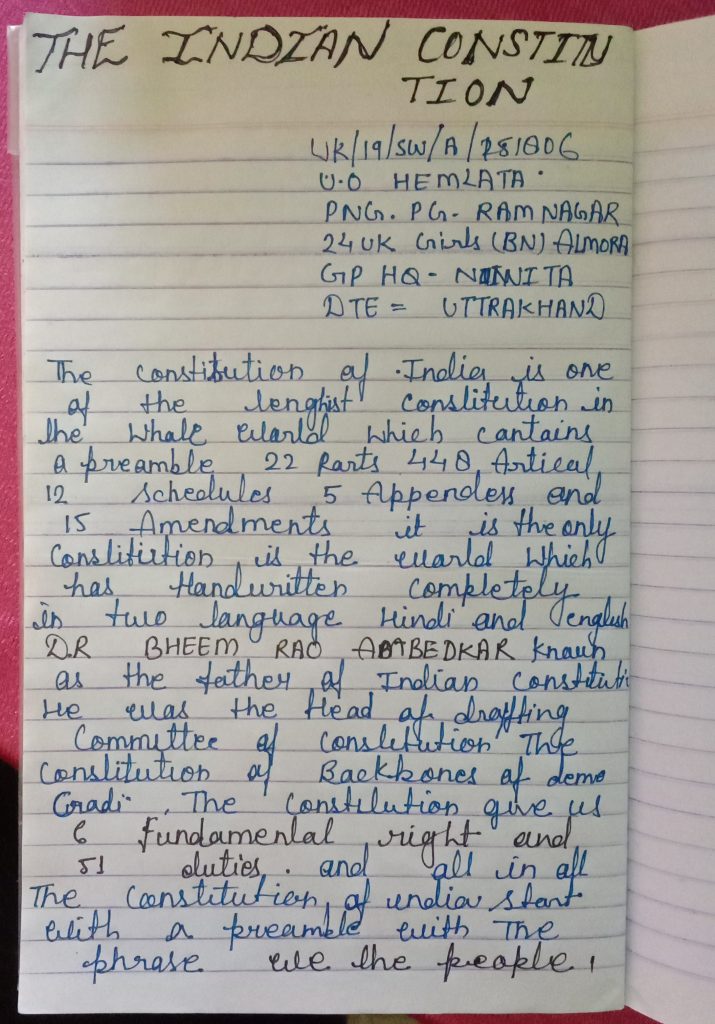 THE INDIAN CONSTITU
TION
UK/19/SW/A/281806
U.O HEMLATA.
PNG. PG. RAMNAGAR
24 UK Girls (BN) ALMORA
GP HQ - NAINITA
DTE = UTTRAKHAND
The constitution of India is one
of the lenghist constitution in
the whale warld which cantains
a preamble 22 Parts 448, Artical
12 Schedules 5 Appendess and
15 Amendments it is the only
Constitution is the warld which
has Handwritten completely
in two language Hindi and english
D.R BHEEM RAO AMBEDKAR Knaun
as the father of Indian constituti
He was the Head of drafting
Committee of constitution The
Constitution of Backbones of demo
Cradi. The Constitution give us
6 fundamental right and
51 duties. and all in all
The Constitution, of india start
with a preamble with The
phrase we the people,